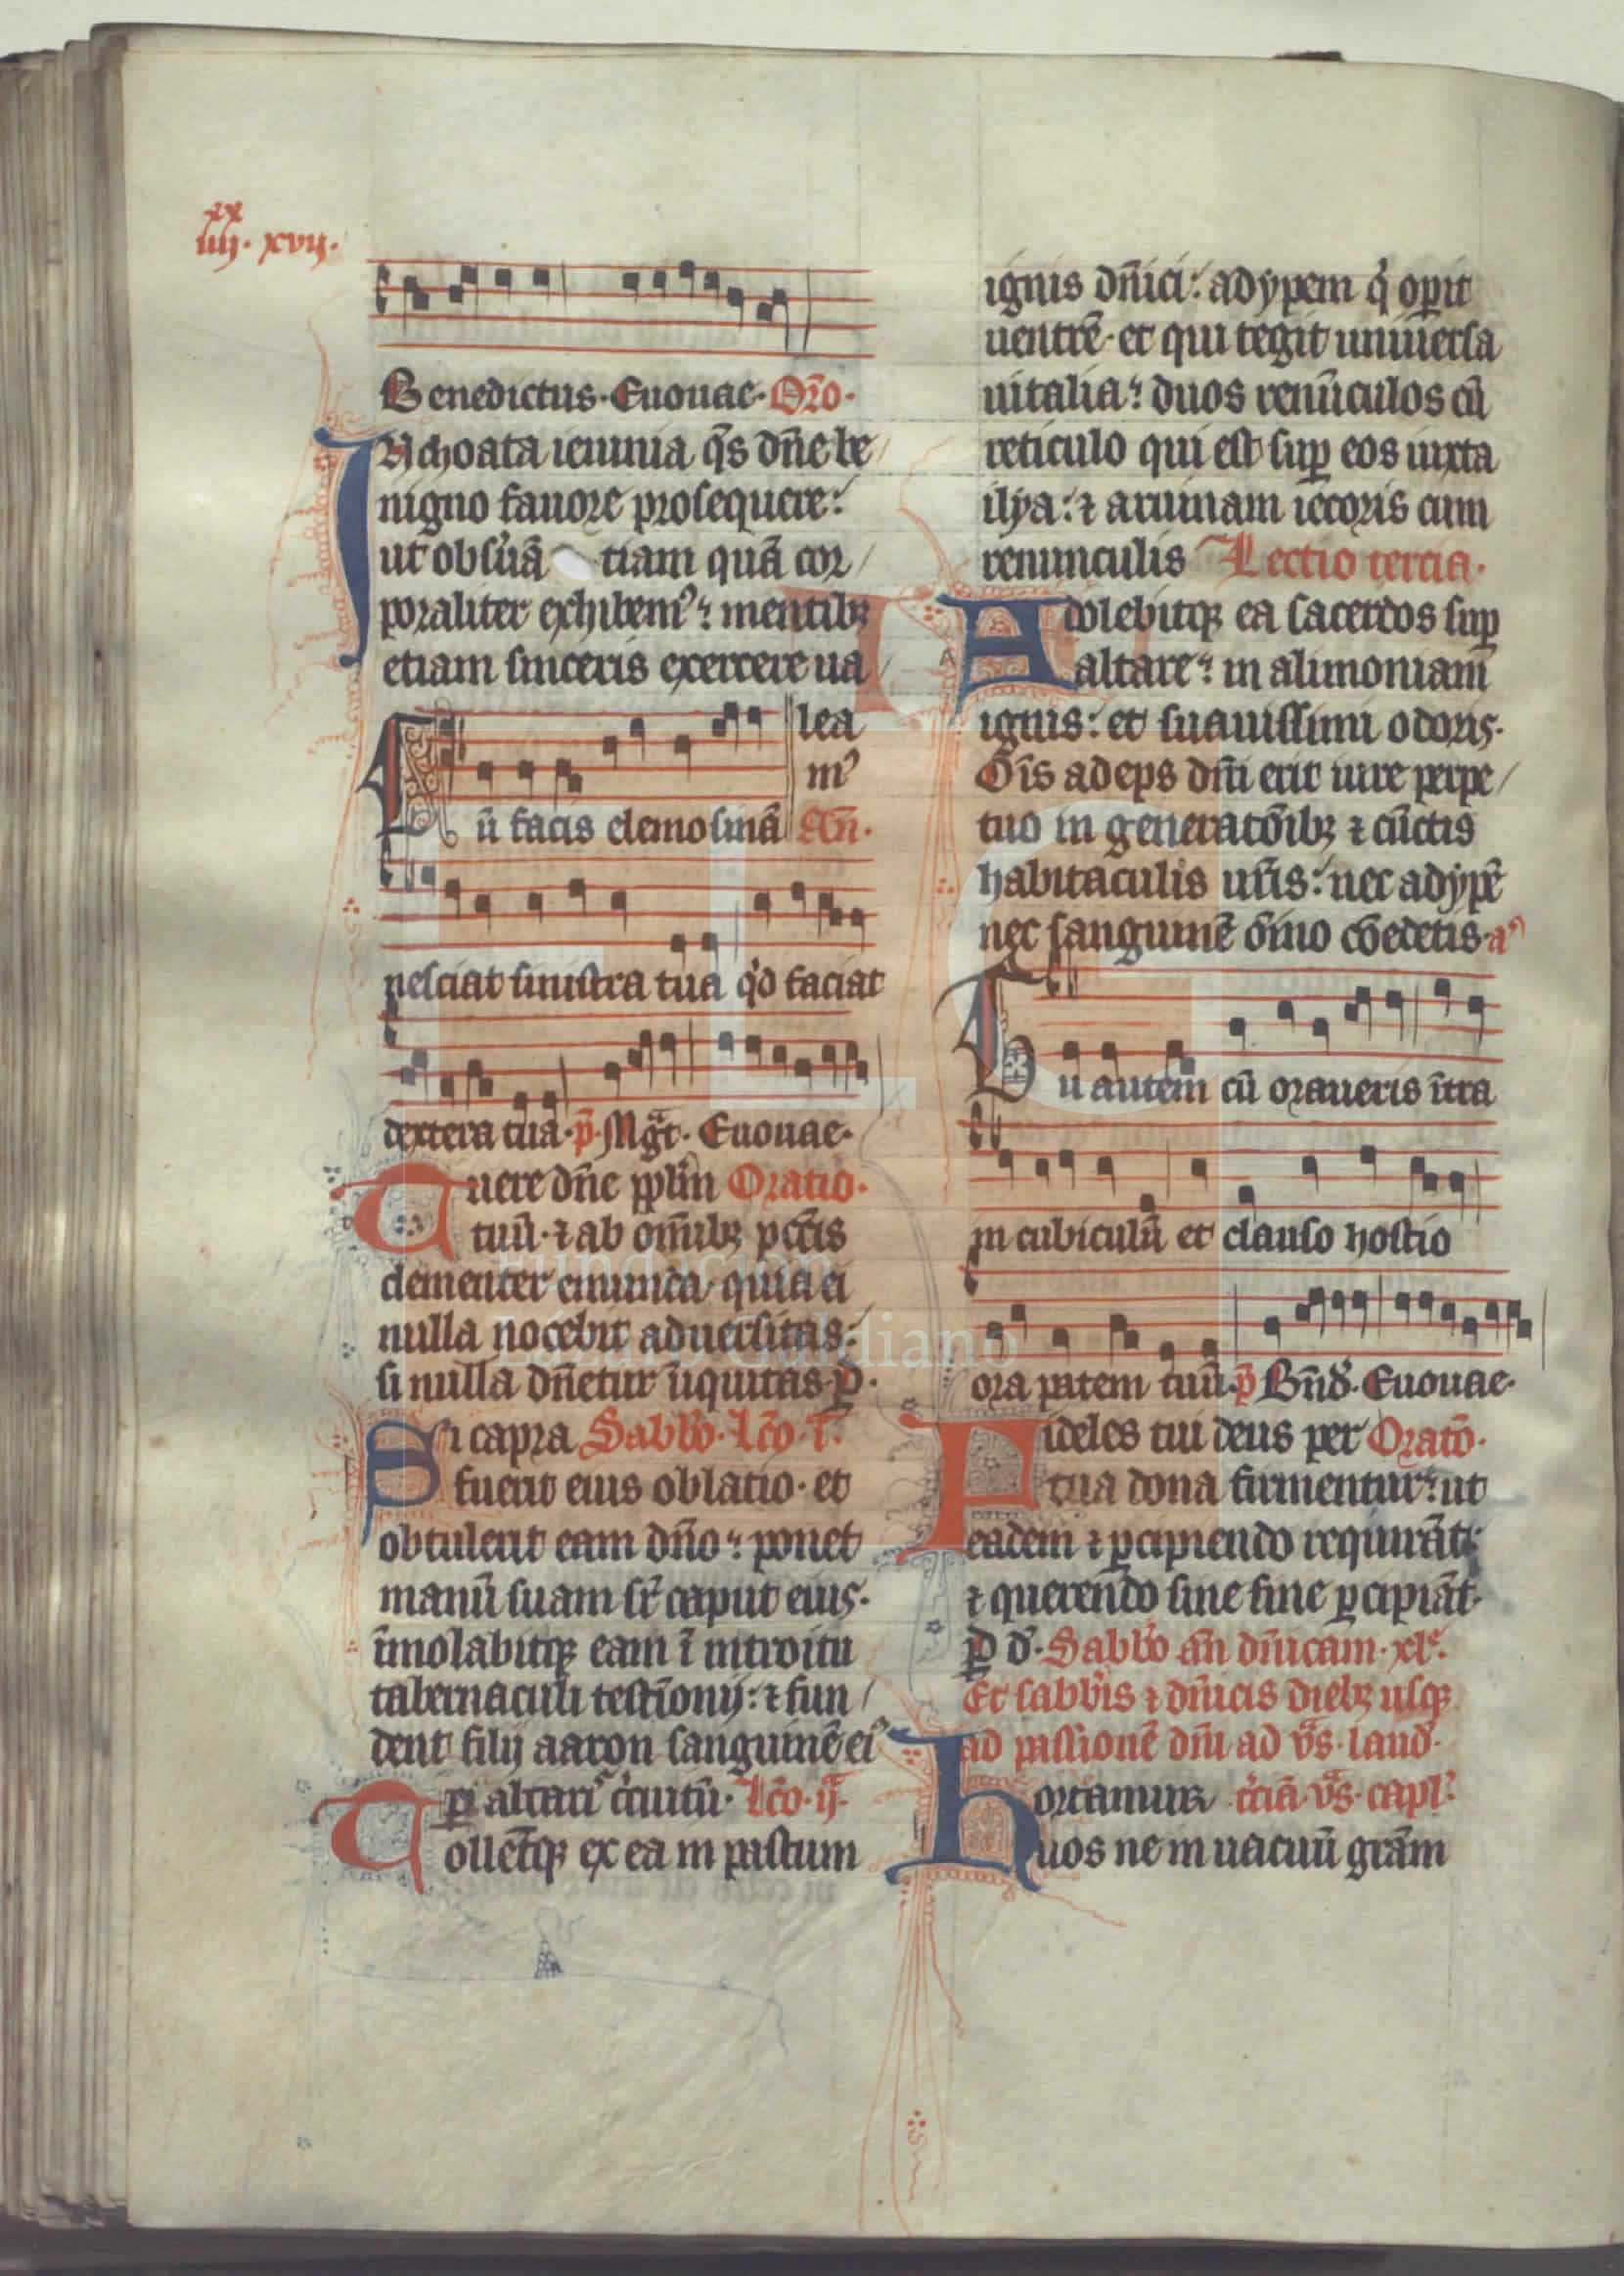 xx
iiij. xvij.
Benedictus. Euouae. Or̄o.
Inchoata ieiunia q̄s dn̄e be
nigno fauore prosequere:
ut obs̓uā tiam quā cor
poraliter exhibem⁹: mentibꝫ
etiam sinceris exercere ua
lea
m⁹
Cū facis elemosinā An̄.
nesciat sinistra tua qd̓ faciat
dextera tua. p̄. Mgᷓt. Euouae.
Tuere dn̄e ppl̄m Oratio.
tuū. ⁊ ab om̄ibꝫ pcc̄is
clementer emunda. quia ei
nulla nocebit aduersitas:
si nulla dn̄etur iniquitas. ꝑ.
Si capra Sabb̓o. lc̄o. i.
fuerit eius oblatio. et
obtulerit eam dn̄o: ponet
manū suam sr̄ caput eius.
īmolabitqꝫ eam ī introitu
tabernaculi testīonij: ⁊ fun
dent filij aaron sanguinē ei⁹
ꝑ altari⁹ c̓cuitū. lc̄o. ij.
Tollētqꝫ ex ea in pastum
ignis dn̄ici: adypem q̓ oꝑit
uentrē. et qui tegit uniuersa
uitalia: duos renūculos cū
reticulo qui est suꝑ eos iuxta
ilya: ⁊ aruinam iecoris cum
renunculis Lectio tercia.
Adolebitqꝫ ea sacerdos suꝑ
altare: in alimoniam
ignis: et suauissimi odoris.
Oīs adeps dn̄i erit iure perpe
tuo in generatōibꝫ ⁊ cūctis
habitaculis ur̄is: nec adypē
nec sanguinē oīno cōedetis. a⁹
Tu autem cū oraueris ītra
in cubiculū et clauso hostio
ora patrem tuū. p̄ Bn̄d̓. Euouae.
Fideles tui deus per Oratō.
tua dona firmentur: ut
eadem ⁊ ꝑcipiendo requirāt.
⁊ querendo sine fine ꝑcipiāt.
ꝑ d̓. Sabb̓o an̄ dn̄icam. xlᵉ.
Et sabb̓is ⁊ dn̄icis diebꝫ usqꝫ
ad passionē dn̄i ad vᷓs. laud̓.
Hortamur t̓ciā. vᷓs. capl̓.
uos ne in uacuū grām
Fundación
Lázaro Galdiano